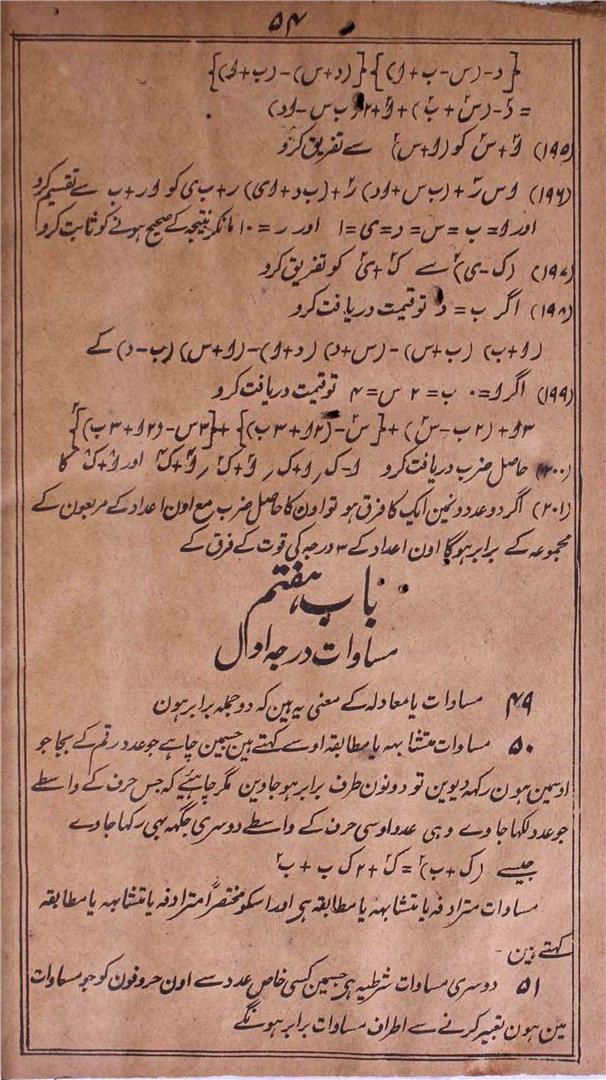 ۵۴
{د-(س-ب+ا)}{(د+س)-(ب+ا)}
=د۲-(س۲+ب۲)+ا۲+۲(ب س-اد)
(۱۹۵) ا۲+س۲ کو (ا+س)۲ سے تفریق کرو
(۱۹۶) اس ر۳+(ب س+اد) ر۲+(ب د+ای) ر+ب ی کو ار+ب سے تقسیم کرو
اور ا=ب=س=د=ی=۱ اور ر=۱۰ مانکر نتیجہ کے صحیح ہونے کو ثابت کرو
(۱۹۷) (ک-ی)۲ سے ک۲+ی۲ کو تفریق کرو
(۱۹۸) اگر ب=د تو قیمت دریافت کرو
(ا+ب) (ب+س)-(س+د) (د+ا)-(ا+س) (ب-د) کے
(۱۹۹) اگر ا=۰ ب=۲ س=۴ تو قیمت دریافت کرو
۳ا+(۲ب-س۲)+{س۲-(۲ا+۳ب)}+{۳س-(۲ا+۳ب)}۲
(۲۰۰) حاصل ضرب دریافت کرو ا-ک, ا+ک, ا۲+ک۲, ا۴+ک۴ اور ا۸+ک۸ کا
(۲۰۱) اگر دو عددونمین ایک کا فرق ہو تو اون کا حاصل ضرب مع اون اعداد کے مربعون کے
مجموعہ کے برابر ہوگا اون اعداد کے ۳ درجہ کی قوت کے فرق کے
باب ہفتم
مساوات درجہ اول
۴۹ مساوات یا معادلہ کے معنی یہ ہین کہ دو جملہ برابر ہون
۵۰ مساوات متشابہہ یا مطابقہ اوسے کہتے ہین جسمین چاہے جو عدد رقم کے بجا جو
اوسمین ہون رکھہ دیوین تو دونون طرف برابر ہو جاوین مگر چاہئیے کہ جس حرف کے واسطے
جو عدد لکھا جاوے وہی عدد اوسی حرف کے واسطے دوسری جگہہ بہی رکھا جاوے
جیسے (ک+ب)۲=ک۲+۲ک ب+ب۲
مساوات مترادفہ یا متشابہہ یا مطابقہ ہی اور اسکو مختصراً مترادفہ یا متشابہہ یا مطابقہ
کہتے ہین-
۵۱ دوسری مساوات شرطیہ ہی جسمین کسی خاص عدد سے اون حروفون کو جو مساوات
مین ہون تعبیر کرنے سے اطراف مساوات برابر ہونگے